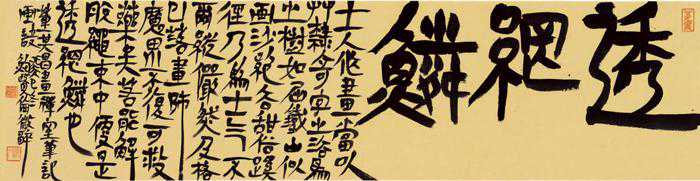 透網鱗
士人作畫當以
艸隸奇字之法為
之樹如屈鐵山似
畫沙絕去甜俗蹊
徑乃為士氣不
爾縱儼然及格
已落畫師
魔界不復可救
藥矣若能解
脫繩束便是
透網鱗也
董其昌畫禪室筆記
畫訣